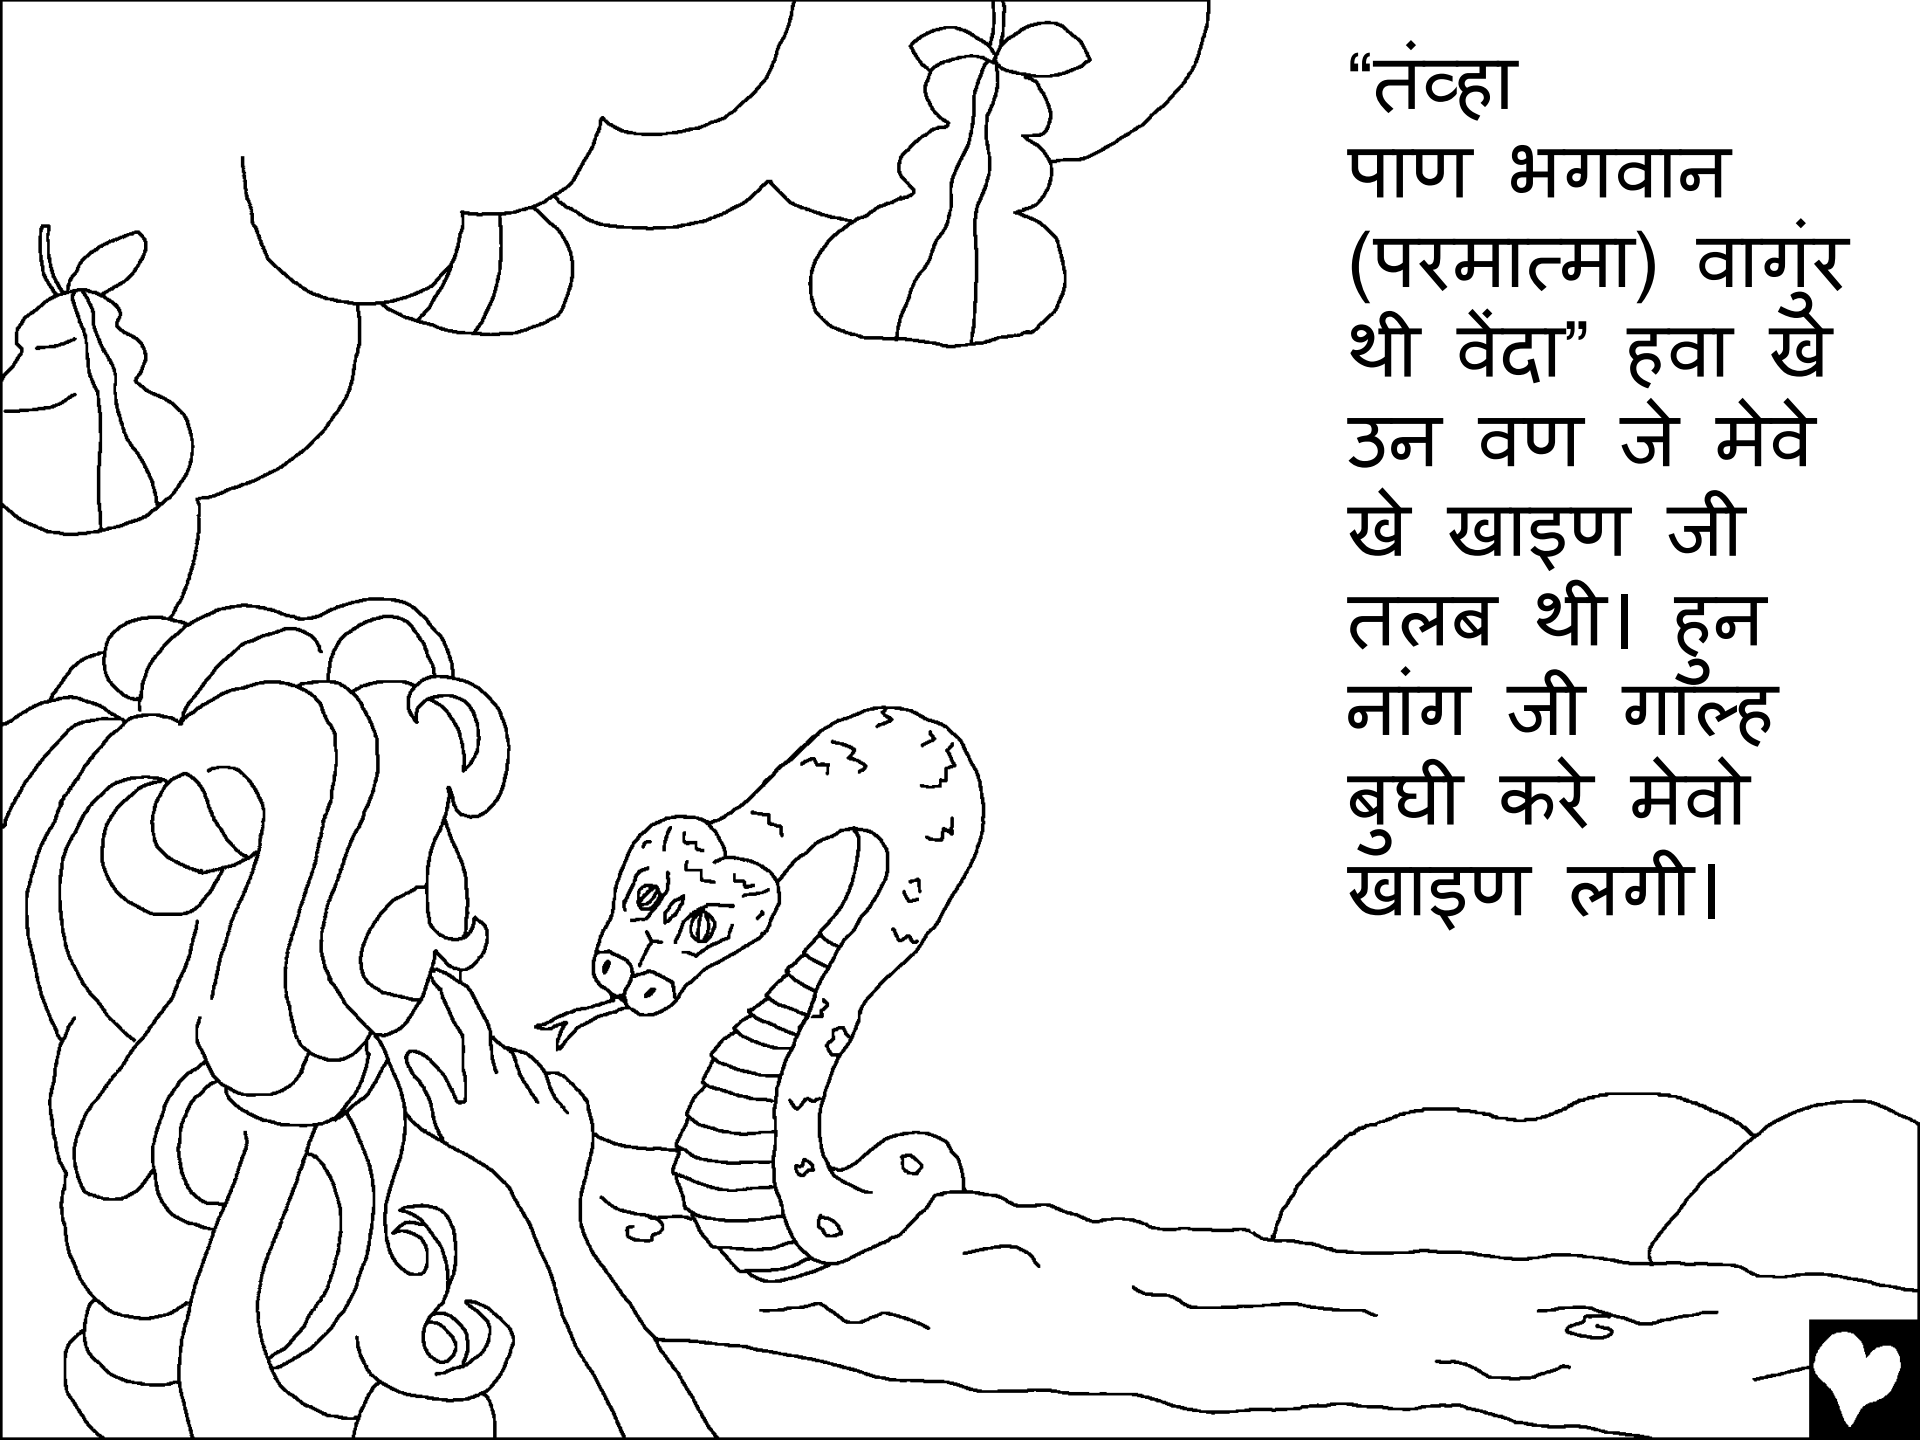 “तंव्हा
पाण भगवान
(परमात्मा) वागुंर
थी वेंदा” हवा खे
उन वण जे मेवे
खे खाइण जी
तलब थी। हुन
नांग जी गाल्ह
बुघी करे मेवो
खाइण लगी।